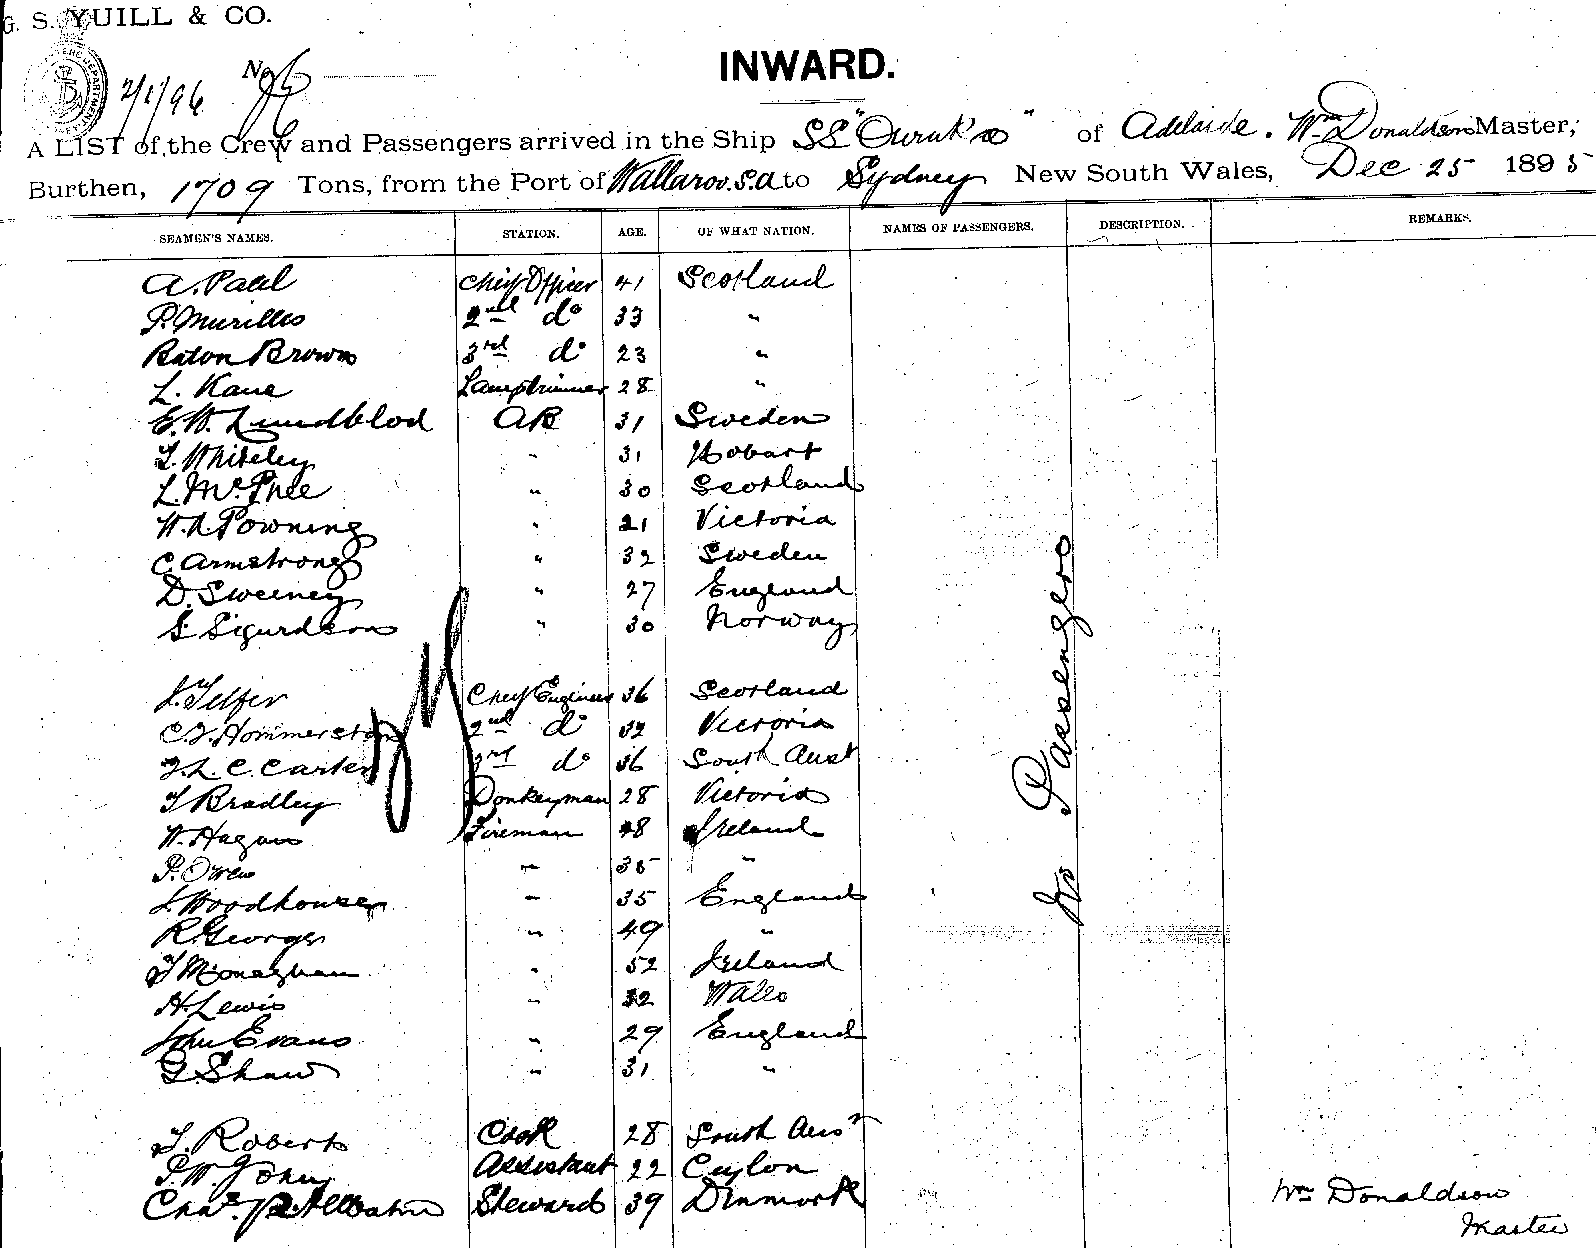 G. S. YUILL & CO.
INWARD.
2/1/96 No
A LIST of the Crew and Passengers arrived in the Ship SS "Ouraka" of Adelaide. Wm Donaldson Master,
Burthen, 1709 Tons, from the Port of Wallaroo. S.A to Sydney New South Wales, Dec 25 1895
SEAMEN'S NAMES. STATION. AGE. OF WHAT NATION. NAMES OF PASSENGERS. DESCRIPTION. REMARKS.
A. Paul Chief Officer 41 Scotland
P. 2nd do 33 "
Eaton Brown 3rd do 23 "
L. Kane Lamptrimmer 28 "
E. W. Lundblod AB 31 Sweden
T. Whiteley " 31 Hobart
L. McPhee " 30 Scotland
W. A. Powning " 21 Victoria
C. Armstrong " 32 Sweden
D. Sweeney " 27 England
S Sigurdson " 30 Norway
J. Telfer Chief Engineer 36 Scotland
C. J. Hommerston 2nd do 32 Victoria
J. L. C. Carter 3rd do 36 South Aust
T Bradley Donkeyman 28 Victoria
W. Hagan Fireman 48 Ireland
P. Owen " 35 "
J. Woodhouse " 35 England
R. George " 49 "
T Monaghan " 52 Ireland
H. Lewis " 32 Wales
John Evans " 29 England
G. Shaw " 31 "
No Passengers
T. Roberts Cook 28 South Aus
P. W. John Assistant 22 Ceylon
Chas. Steward 39 Denmark
Wm Donaldson
Master